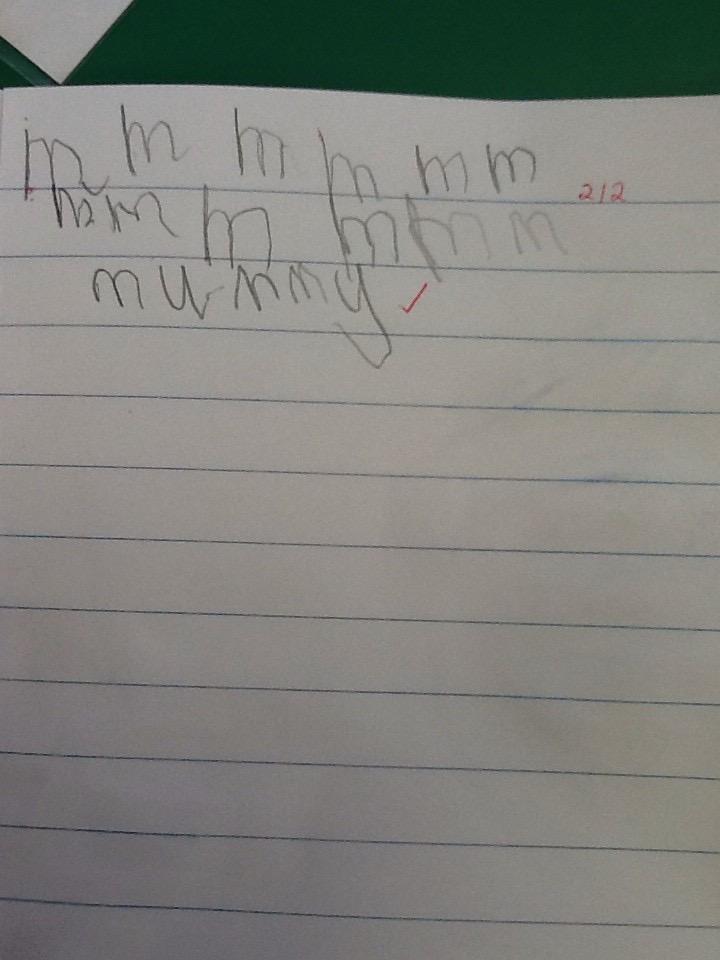 m m m m m m 2/2
m m m m m m
mummy ✓